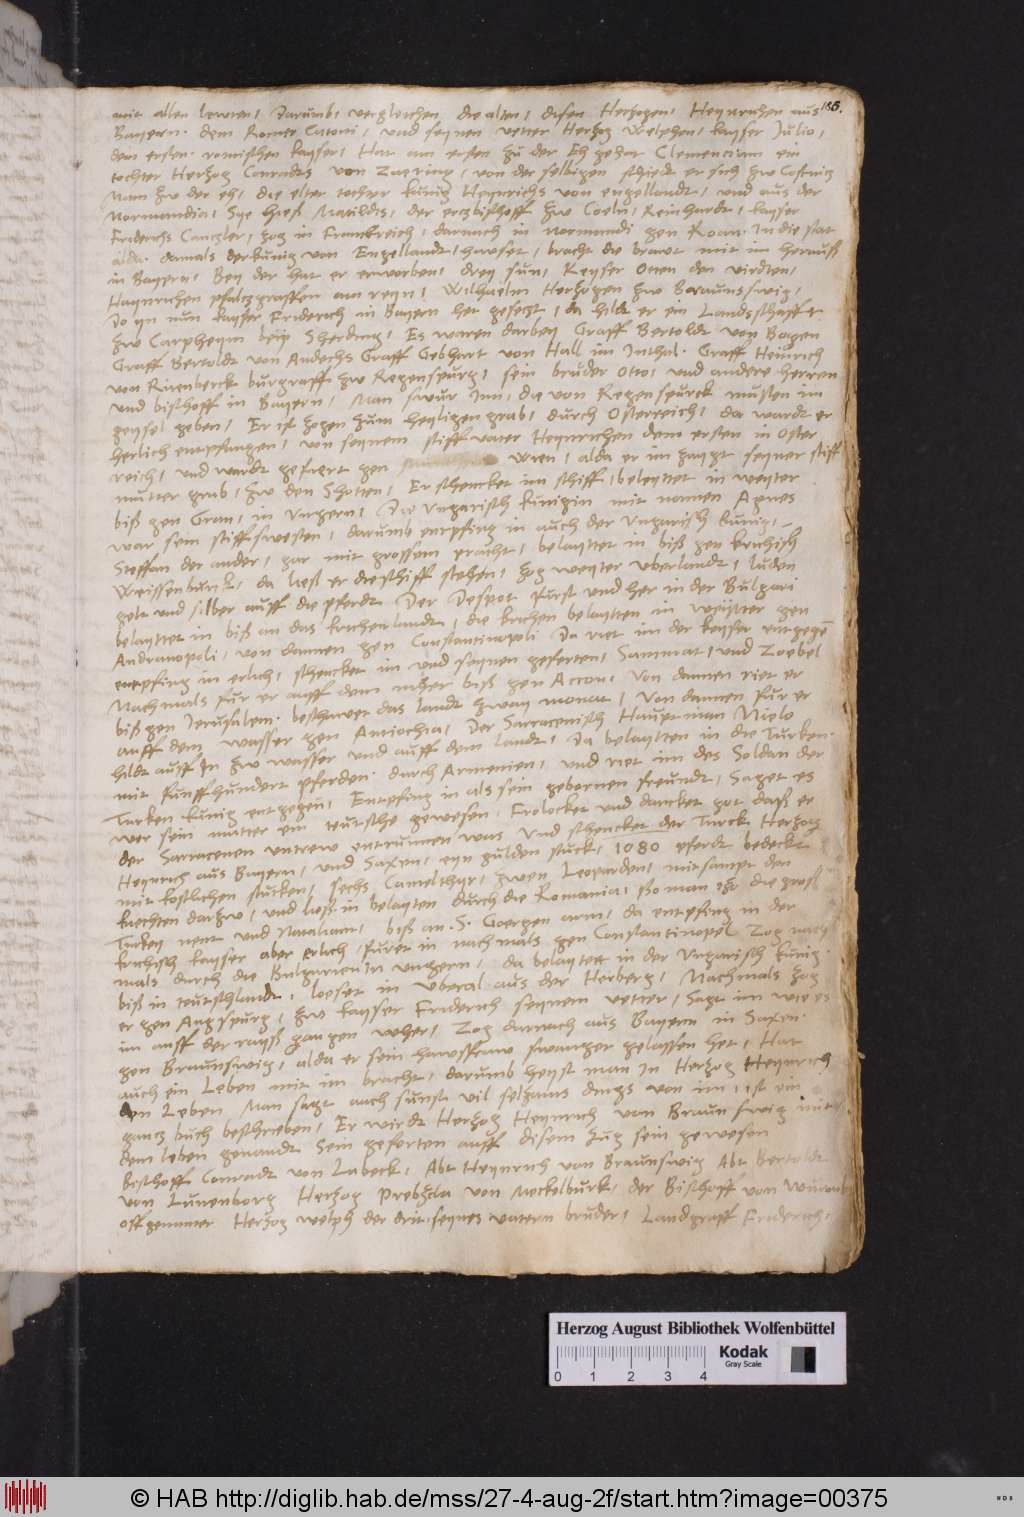 186.
mit allen lewten, Darumb vergleichen die alten, disen Herzogen, Heynrichen aus
Bayern. dem Romer Catoni, und seynen vetter Herzog Welphen, kayser Julio,
dem ersten. romischen kayser, Hat am ersten zu der Eh gehat Clemenciam ein
tochter Herzog Conradts von Zaering, von der selbigen schiedt er sich zw Costnitz
Nam zw der eh, die elter tochter kunig Heynrichs von engellandt, und aus der
Normandia, Sye hieß Matildis, der ertzbischoff zw Coeln, Reinhardt, kayser
Friderichs Cantzler, zog in Franckreich, darnach in normandi gen Roan. In die stat
alda. damals der kunig von Engellandt, hwset, bracht die brawt mit im herauß
in Bayern, Bey der hat er erworben, drey sun, Keyser Otten den virdten,
Haynrichen pfaltzgraffen am reyn, Wilhaelm Herzogen zw Braunswig,
Do yn nun kayser Friderich in Bayern het gesetzt, da hildt er ein Landsschafft
zw Carpheym bey Sherding, Es waren darbey Graff Bertoldt von Bogen
Graff Bertoldt von Andechs Graff Gebhart von Hall im Inthal. Graff Heinrich
von Ritenberck burgraff zw Regenspurg, sein bruder Otto, und andere herren
und bischoff in Bayern, Man swur Inn, die von Regenspurck musten im
geysel geben, Er ist zogen zum heyligen grab, durch Osterreich, da wardt er
herlich entpfangen, von seynem stiffvater Heynrichen dem ersten in Oster
reich, und wardt gefuert gen Wien, alda er im zaygt seyner stiff
mutter grab, zw den Shotten, Er schencket im schiff, beleyttet in weyter
biß gen Gran, in Vngern, Die Vngarisch kunigin mit namen Agnes
war sein stiffswester, darumb entpfing in auch der Vngarisch kunig,
Steffan der ander, gar mit grossem pracht, belayttet in biß gen krichisch
Weissenburck, da ließ er die schiff stehen, zog weyter vberlandt, luden
gelt und silber auff die pferdt Der Despot Furst und her in der Bulgari
belayttet in biß an das krichenlandt, die krichen belaytten in weytter gen
Andranopoli, von dannen gen Constantinopoli Da riet im der keyser entgegen
entpfing in erlich, schencket im und seynen geferten, Sammat, und Zoebel
Nachmals fur er auff dem meher biß gen Accon, Von dannen riet er
biß gen Jerusalem. beschawet das landt zway monat, Von dannen fur er
auff dem wasser gen Antiochia, Der Sarracenisch Hauptman Nielo
hildt auff In zw wasser und auff dem landt, Da belaytten in die Turken.
mit funffhundert pferden. durch Armenien, und riet im des Soldan der
Turken kunig entgegen, Entpfing in als sein gebornen freundt, Saget es
wer sein mutter ein teutsche gewesen, Frolocket und dancket got daß er
der Sarracenen untrew entrunnen was Und schencket der Turck Herzog
Heynrich aus Bayern, und Saxen, eyn gulden stuck, 1080 pferdt bedeckt
mit kostlichen stucken, sechs Camelthyr, zwen Leoparden, mitsampt den
knechten darzw, und ließ in belayten durch die Romania, so man itzt die groß
Turkey nent und Nataliam, biß an. S. Goergen arm, da entpfing in der
krichisch kayser aber erlich, furet in nachmals gen Constantinopel Zog nach
mals durch die Bulgarien In vngern, da belaytet in der Vngarisch kunig
biß in teutschlandt, loeset in vberal aus der Herberg, Nachmals zog
er gen Augspurg, zw kayser Friderich seynem vetter, Sagt im wie es
im auff der rayß gangen wher, Zog darnach aus Bayern in Saxen.
gen Braunswig, alda er sein hawsfraw swanger gelassen het, Hat
auch ein Leben mit im bracht, darumb heyst man In Herzog Heynrich
den Leben Man sagt auch sunst vil selzams dings von im, ist ein
gantz buch beschrieben, Er wirdt Herzog Heynrich von Braunswig mit
dem leben genandt Sein geferten auff disem zug sein gewesen
Bischoff Conradt von Lubeck, Abt Heynrich von Braunswig Abt Bertoldt
von Lunenborg Herzog Prebzla von Meckelburk, der Bischoff von
offgenanter Herzog welph der drit, seynes vatern bruder, Landgraff Friderich,
Herzog August Bibliothek Wolfenbüttel
Kodak
Gray Scale
0 1 2 3 4
© HAB http://diglib.hab.de/mss/27-4-aug-2f/start.htm?image=00375